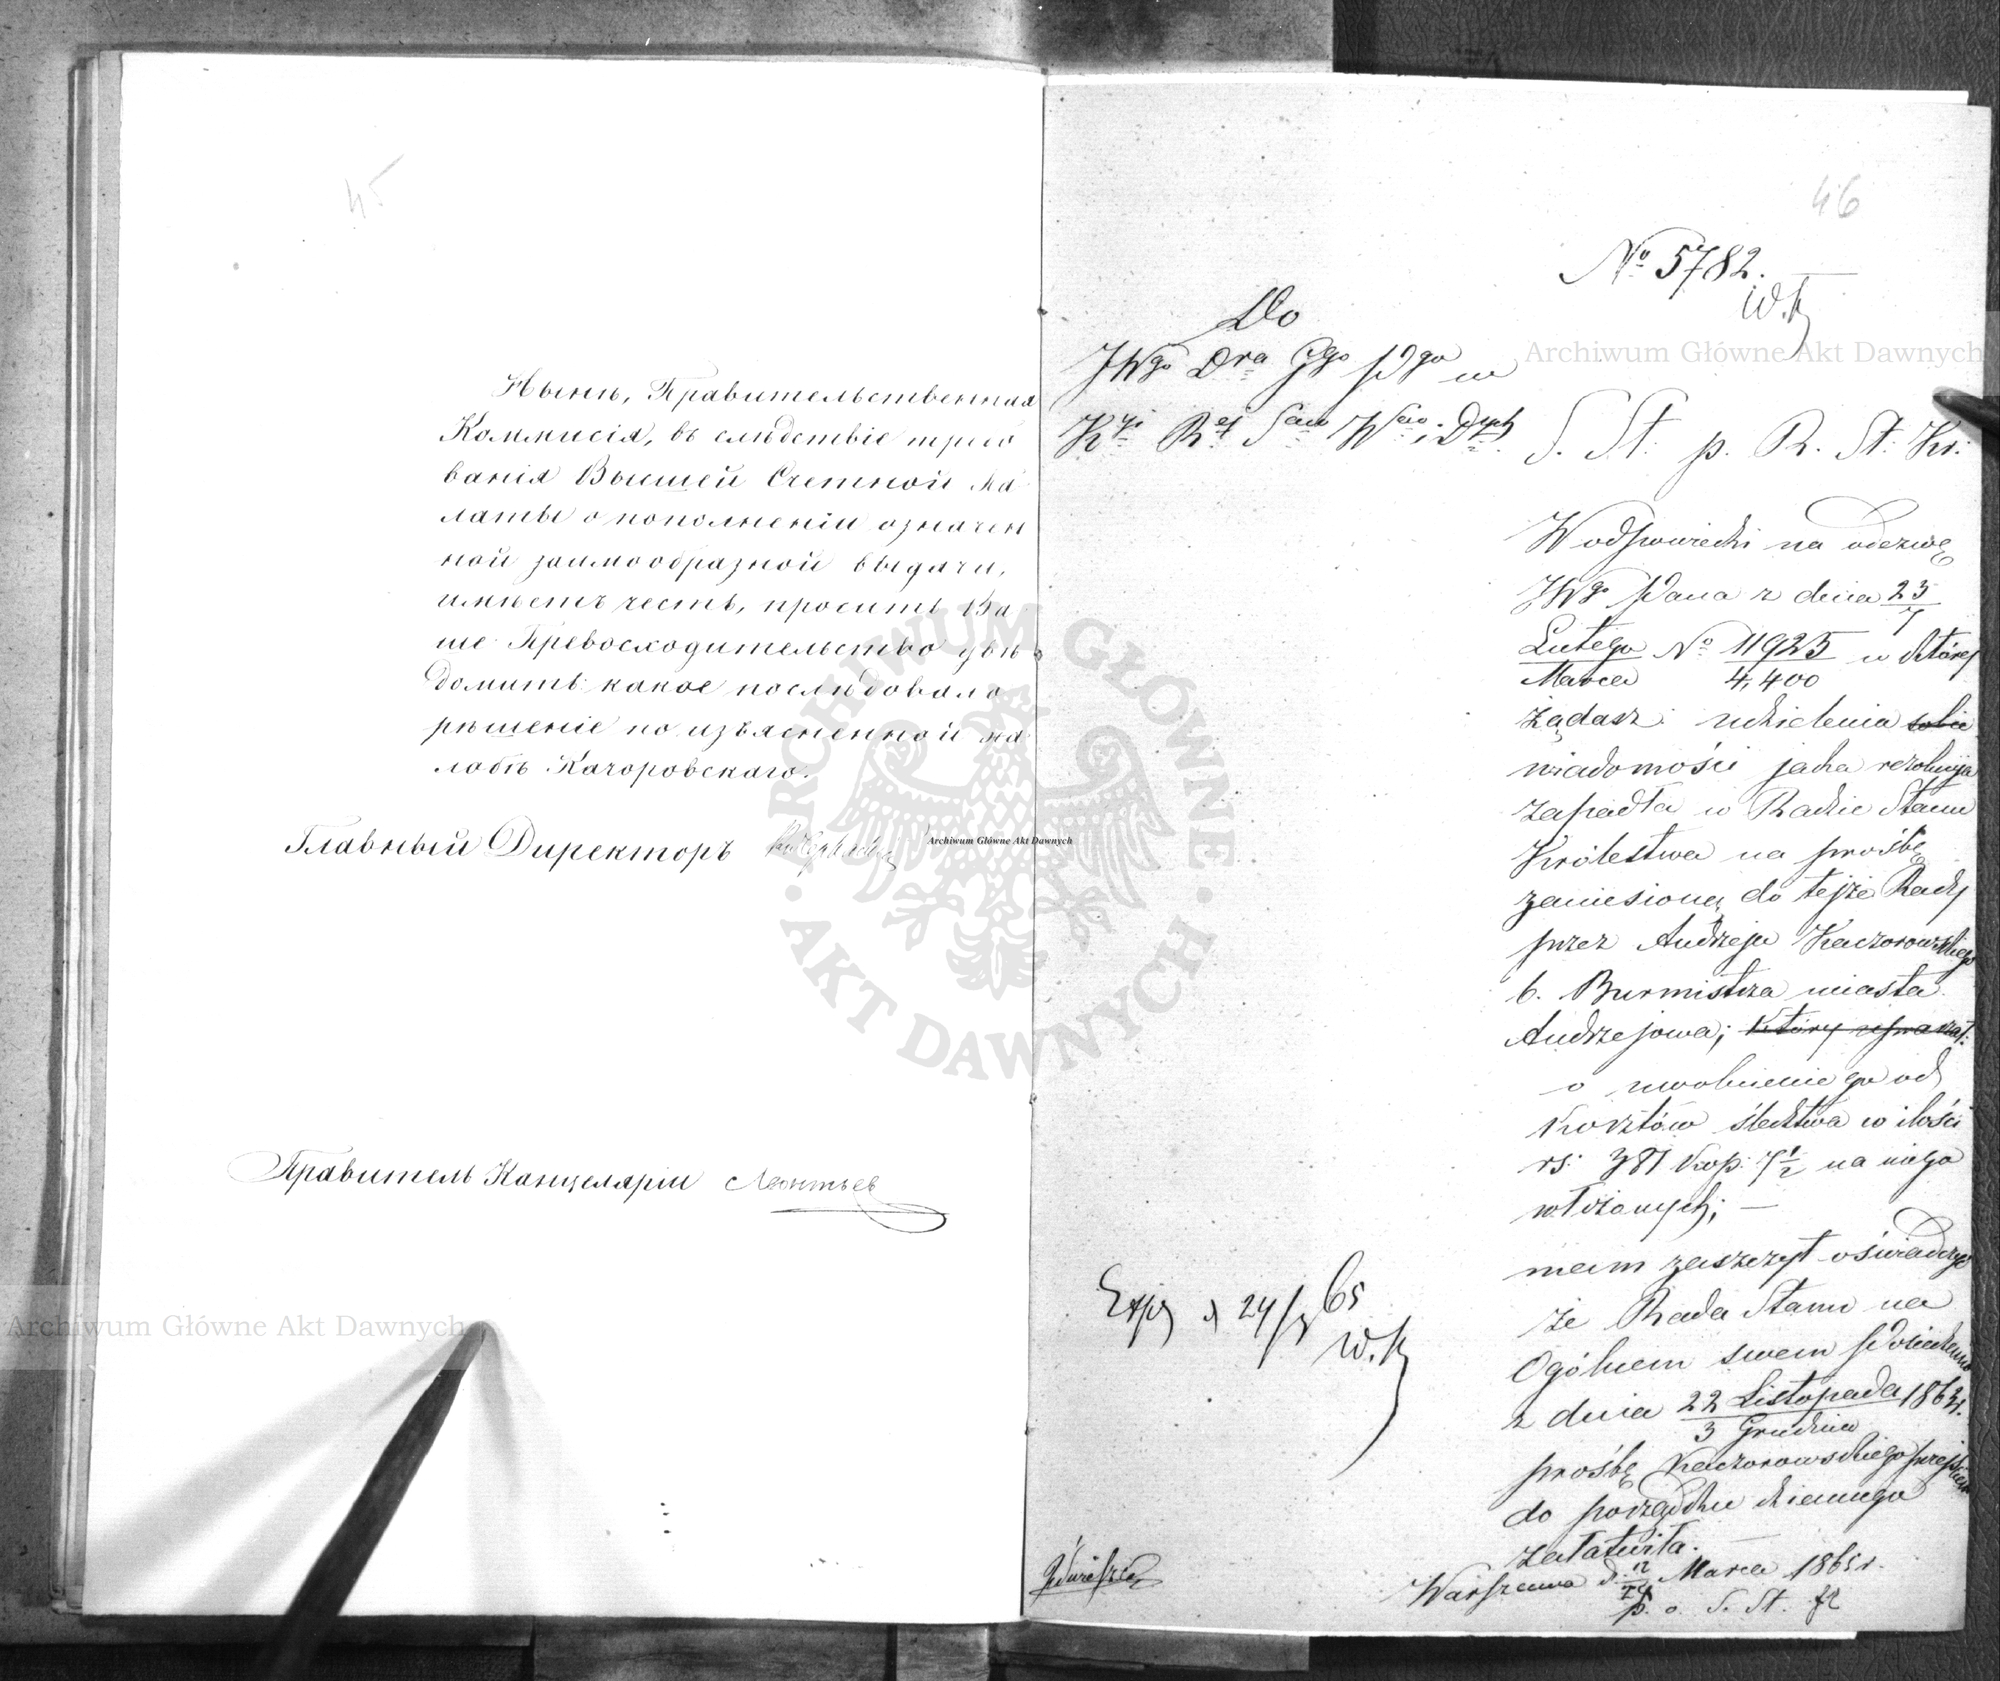 45
Нынѣ, Правительственная
Коммисія, въ слѣдствіе требо
ванія Высшей Счетной Па
латы о пополненіи означен
ной заимообразной выдачи,
имѣетъ честь, просить Ва
ше Превосходительство увѣ
домить: какое послѣдовало
рѣшеніе по изъясненной жа
лобѣ Качоровскаго.
Главный Директоръ
Правитель Канцеляріи Леонтьев
46
No 5782.
W.K
Do
JWgo Dra Ggo Pgo w
Kyi Rej Spraw Wew. i Duch.
S. St: p. R. St: Kr:
W odpowiedzi na odezwę
JWgo Pana z dnia 23/7
Lutego/Marca No 11925/4,400 w której
żądasz udzielenia sobie
wiadomości jaka rezolucyja
zapadła w Radzie Stanu
Królestwa na prośbę
zaniesioną do tejże Rady
przez Andrzeja Kaczorowskiego
b. Burmistrza miasta
Andrzejowa;
o uwolnienie go od
kosztów śledztwa w ilości
rs: 381 kop: 7½ na niego
włożonych; —
mam zaszczyt oświadczyć
że Rada Stanu na
Ogólnem swem Posiedzeniu
z dnia 22 Listopada/3 Grudnia 1863r.
prośbę Kaczorowskiego przejściem
do porządku dziennego
załatwiła.
Warszawa d. 12/24 Marca 1865 r.
p. o. S. St.
Exp d 24/3 65
W.K
Archiwum Główne Akt Dawnych
Archiwum Główne Akt Dawnych
Archiwum Główne Akt Dawnych
ARCHIWUM GŁÓWNE · AKT DAWNYCH ·